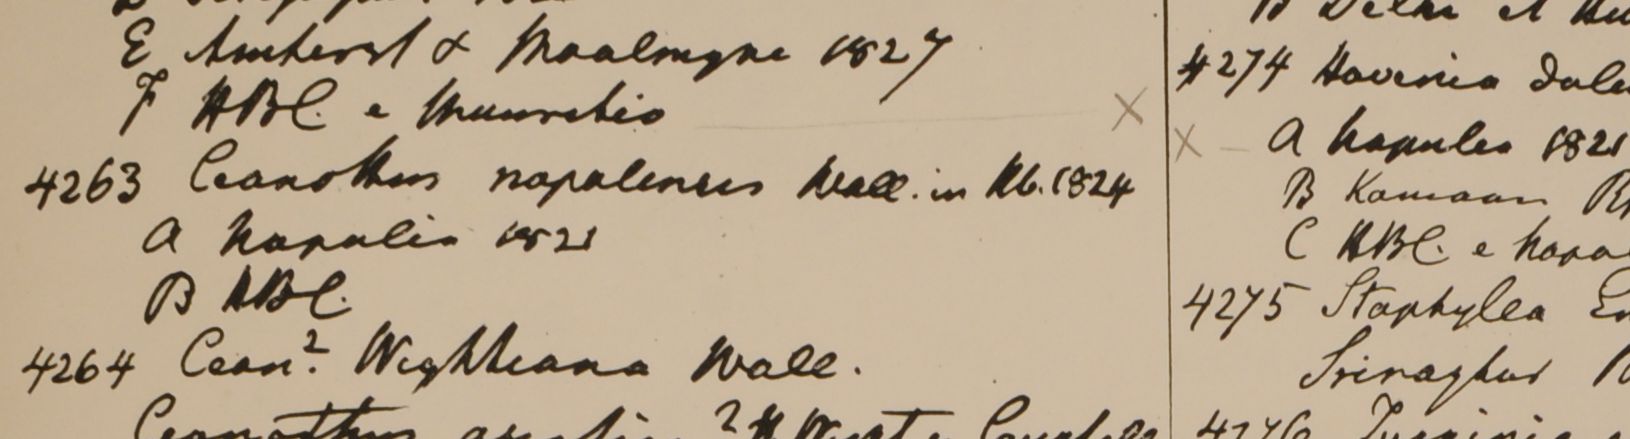 E Amherst & Moalmyne 1827
F HBC. e Mauritio
4263 Ceanothus napalensis Wall. in Hb. 1824
A Napalia 1821
B HBC.
4264 Cean? Wightiana Wall.
Ceanothus
4274 Hovenia dulc
A Napalia 1821
B Kamaon
C HBC. e Napa
4275 Staphylea Em
Srinaghur
4276